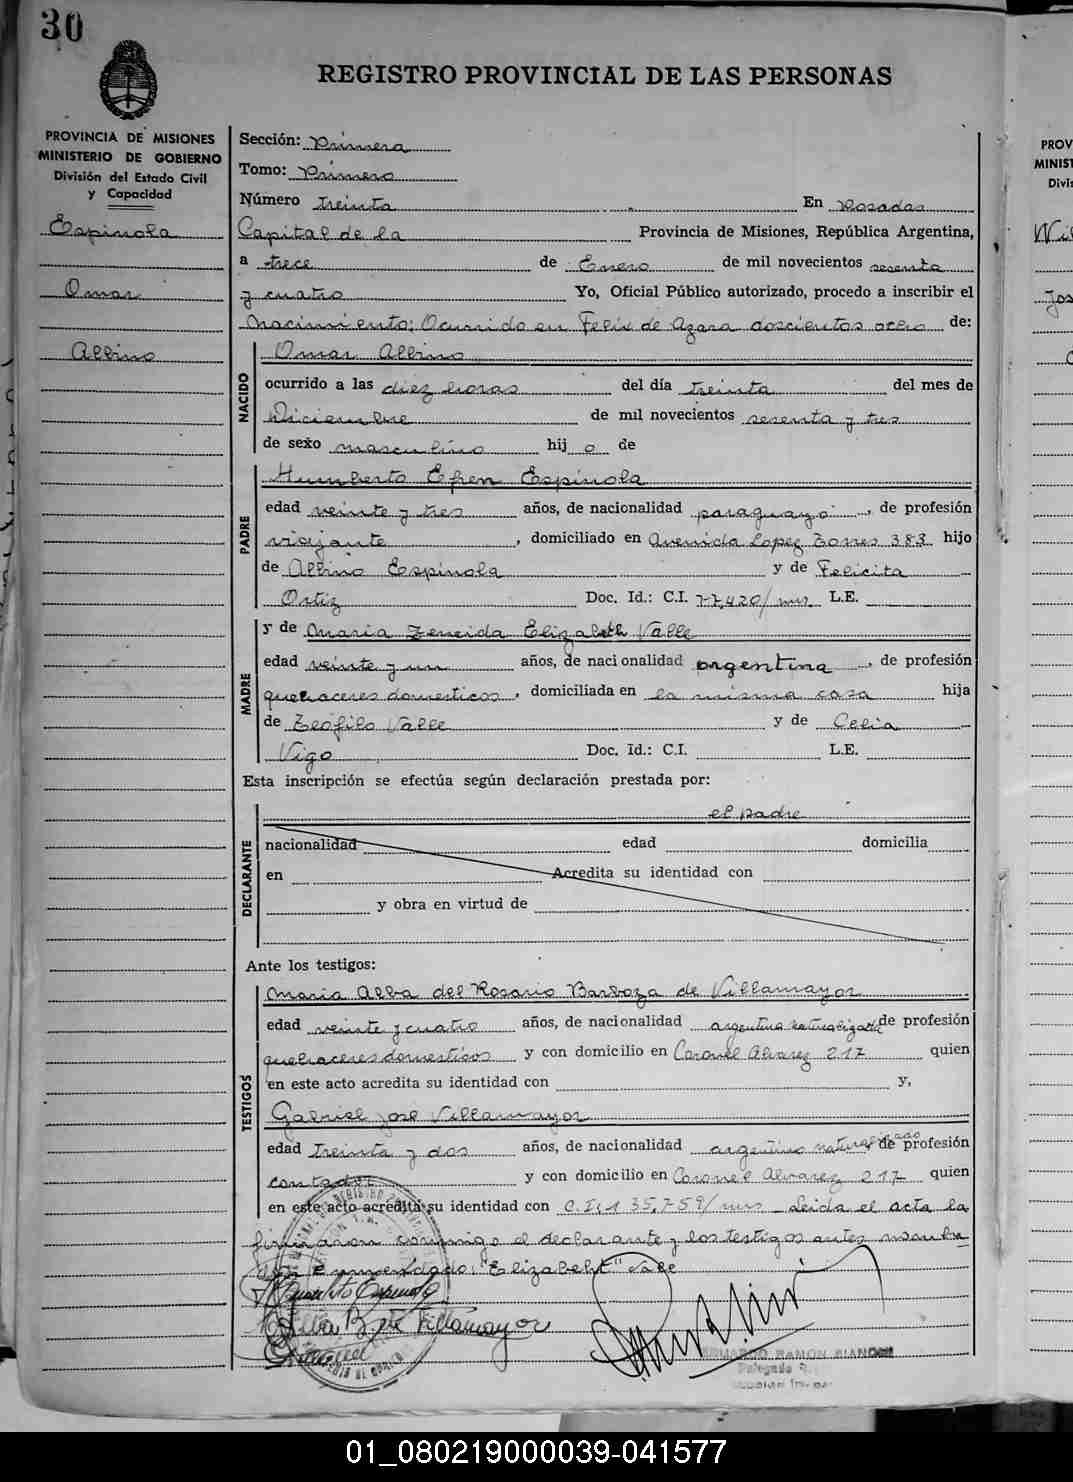 30
REGISTRO PROVINCIAL DE LAS PERSONAS
PROVINCIA DE MISIONES
MINISTERIO DE GOBIERNO
División del Estado Civil
y Capacidad
Espinola
Omar
Albino
Sección: Primera
Tomo: Primero
Número treinta En Posadas
Capital de la Provincia de Misiones, República Argentina,
a trece de Enero de mil novecientos sesenta
y cuatro Yo, Oficial Público autorizado, procedo a inscribir el
Nacimiento: Ocurrido en Felix de Azara doscientos ocho de:
NACIDO
Omar Albino
ocurrido a las diez horas del día treinta del mes de
Diciembre de mil novecientos sesenta y tres
de sexo masculino hij o de
PADRE
Humberto Efren Espinola
edad veinte y tres años, de nacionalidad paraguayo, de profesión
viajante, domiciliado en Avenida Lopez Torres 383 hijo
de Albino Espinola y de Felicita
Ortiz Doc. Id.: C.I. 77.420/mns. L.E.
MADRE
y de Maria Zeneida Elizabeth Valle
edad veinte y un años, de nacionalidad argentina, de profesión
quehaceres domesticos, domiciliada en la misma casa hija
de Teófilo Valle y de Celia
Vigo Doc. Id.: C.I. L.E.
Esta inscripción se efectúa según declaración prestada por:
DECLARANTE
el padre
nacionalidad edad domicilia
en Acredita su identidad con
y obra en virtud de
Ante los testigos:
TESTIGOS
Maria Alba del Rosario Barboza de Villamayor
edad veinte y cuatro años, de nacionalidad argentina naturalizada de profesión
quehaceres domesticos y con domicilio en Coronel Alvarez 217 quien
en este acto acredita su identidad con y,
Gabriel José Villamayor
edad treinta y dos años, de nacionalidad argentino naturalizado de profesión
contador y con domicilio en Coronel Alvarez 217 quien
en este acto acredita su identidad con C.I. 135.759/mns Leida el acta la
firmaron conmigo el declarante y los testigos antes nombra
dos Enmendado: "Elizabeht" Vale
Humberto Espinola
Alba B de Villamayor
EDUARDO RAMON BIANCHI
Delegado
PROV
MINIST
Divis
01_080219000039-041577